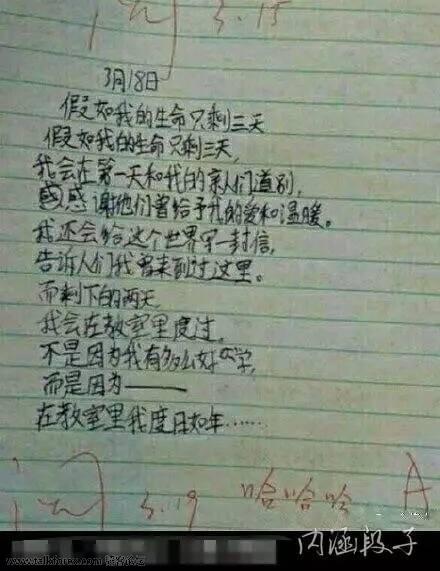 3.15
3月18日
假如我的生命只剩三天
假如我的生命只剩三天,
我会在第一天和我的亲人们道别,
感谢他们曾给予我的爱和温暖。
我还会给这个世界写一封信,
告诉人们我曾来到过这里。
而剩下的两天,
我会在教室里度过,
不是因为我有多么好学,
而是因为——
在教室里我度日如年……
阅 3.19 哈哈哈 A
www.talkforex.com 韬客论坛
内涵段子